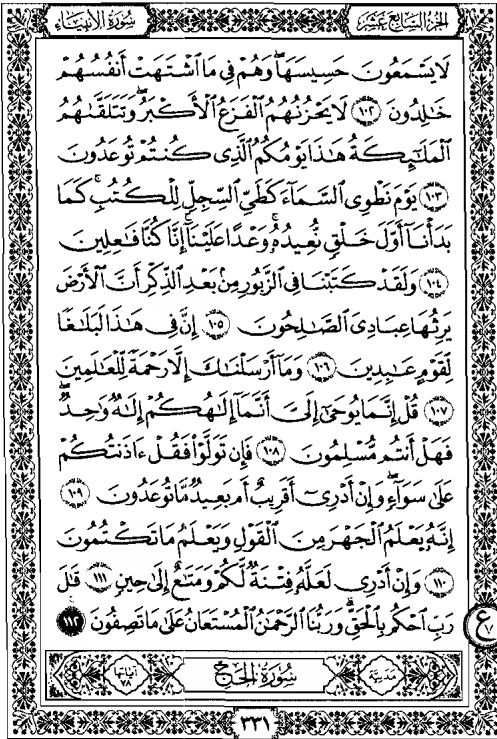 الجزء السابع عشر
سورة الأنبياء
لَا يَسْمَعُونَ حَسِيسَهَا ۖ وَهُمْ فِي مَا ٱشْتَهَتْ أَنفُسُهُمْ
خَٰلِدُونَ ١٠٢ لَا يَحْزُنُهُمُ ٱلْفَزَعُ ٱلْأَكْبَرُ وَتَتَلَقَّىٰهُمُ
ٱلْمَلَٰٓئِكَةُ هَٰذَا يَوْمُكُمُ ٱلَّذِى كُنتُمْ تُوعَدُونَ
١٠٣ يَوْمَ نَطْوِى ٱلسَّمَآءَ كَطَىِّ ٱلسِّجِلِّ لِلْكُتُبِ ۚ كَمَا
بَدَأْنَآ أَوَّلَ خَلْقٍ نُّعِيدُهُۥ ۚ وَعْدًا عَلَيْنَآ ۚ إِنَّا كُنَّا فَٰعِلِينَ
١٠٤ وَلَقَدْ كَتَبْنَا فِى ٱلزَّبُورِ مِنۢ بَعْدِ ٱلذِّكْرِ أَنَّ ٱلْأَرْضَ
يَرِثُهَا عِبَادِىَ ٱلصَّٰلِحُونَ ١٠٥ إِنَّ فِى هَٰذَا لَبَلَٰغًا
لِّقَوْمٍ عَٰبِدِينَ ١٠٦ وَمَآ أَرْسَلْنَٰكَ إِلَّا رَحْمَةً لِّلْعَٰلَمِينَ
١٠٧ قُلْ إِنَّمَا يُوحَىٰٓ إِلَىَّ أَنَّمَآ إِلَٰهُكُمْ إِلَٰهٌ وَٰحِدٌ ۖ
فَهَلْ أَنتُم مُّسْلِمُونَ ١٠٨ فَإِن تَوَلَّوْا۟ فَقُلْ ءَاذَنتُكُمْ
عَلَىٰ سَوَآءٍ ۖ وَإِنْ أَدْرِىٓ أَقَرِيبٌ أَم بَعِيدٌ مَّا تُوعَدُونَ ١٠٩
إِنَّهُۥ يَعْلَمُ ٱلْجَهْرَ مِنَ ٱلْقَوْلِ وَيَعْلَمُ مَا تَكْتُمُونَ
١١٠ وَإِنْ أَدْرِى لَعَلَّهُۥ فِتْنَةٌ لَّكُمْ وَمَتَٰعٌ إِلَىٰ حِينٍ ١١١ قَٰلَ
رَبِّ ٱحْكُم بِٱلْحَقِّ ۗ وَرَبُّنَا ٱلرَّحْمَٰنُ ٱلْمُسْتَعَانُ عَلَىٰ مَا تَصِفُونَ ١١٢
ع
٧
مدنية
سورة الحج
آياتها ٧٨
٣٣١